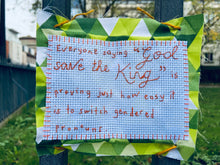 Everyone saying "God
save the King" is
proving just how easy it
is to switch gendered
pronouns